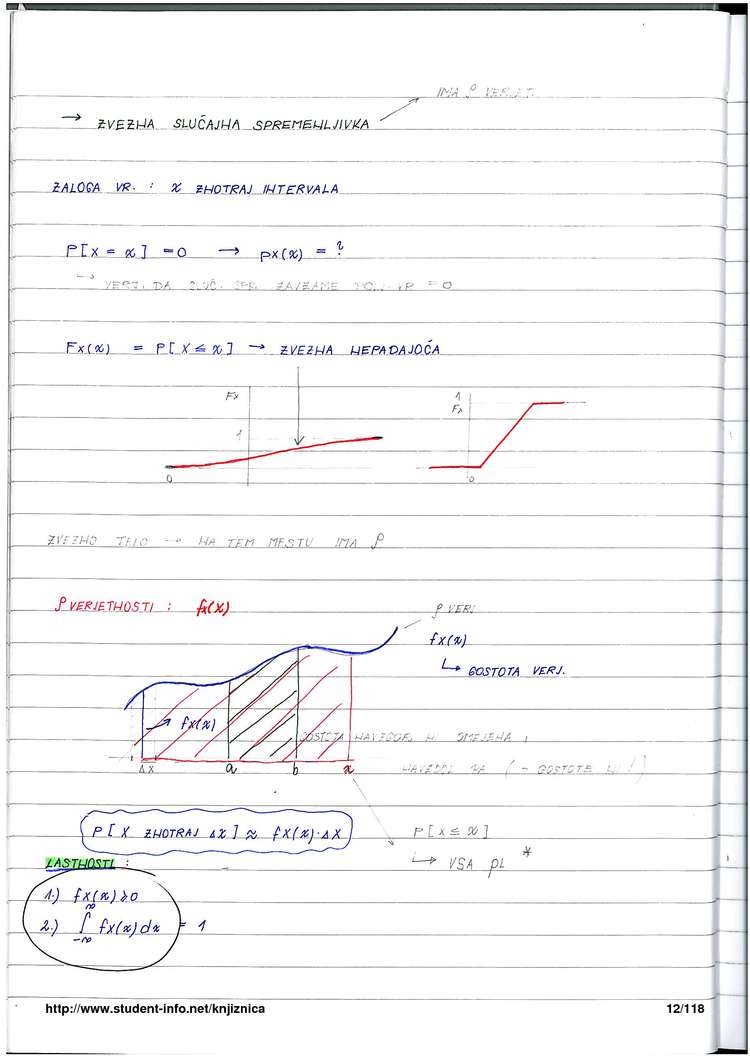 IMA ρ VERJET.
→ ZVEZNA SLUČAJNA SPREMENLJIVKA
ZALOGA VR. : x ZNOTRAJ INTERVALA
P[X = x] = 0 → px(x) = ?
↳ VERJ. DA SLUČ. SPR. ZAVZAME POLJ. VR = 0
Fx(x) = P[X ≤ x] → ZVEZNA NEPADAJOČA
Fx
1
0
1
Fx
0
ZVEZNO TELO → NA TEM MESTU IMA ρ
ρ VERJETNOSTI : fx(x)
ρ VERJ.
fx(x)
↳ GOSTOTA VERJ.
→ fx(x)
GOSTOTA NAVZGOR NI OMEJENA,
NAVZDOL PA (- GOSTOTE NI!)
Δx a b x
P[X ZNOTRAJ Δx] ≈ fx(x)·Δx
P[X ≤ x]
↳ VSA PL *
LASTNOSTI :
1.) fx(x) ≥ 0
2.) ∫_{-∞}^{∞} fx(x)dx = 1
http://www.student-info.net/knjiznica 12/118